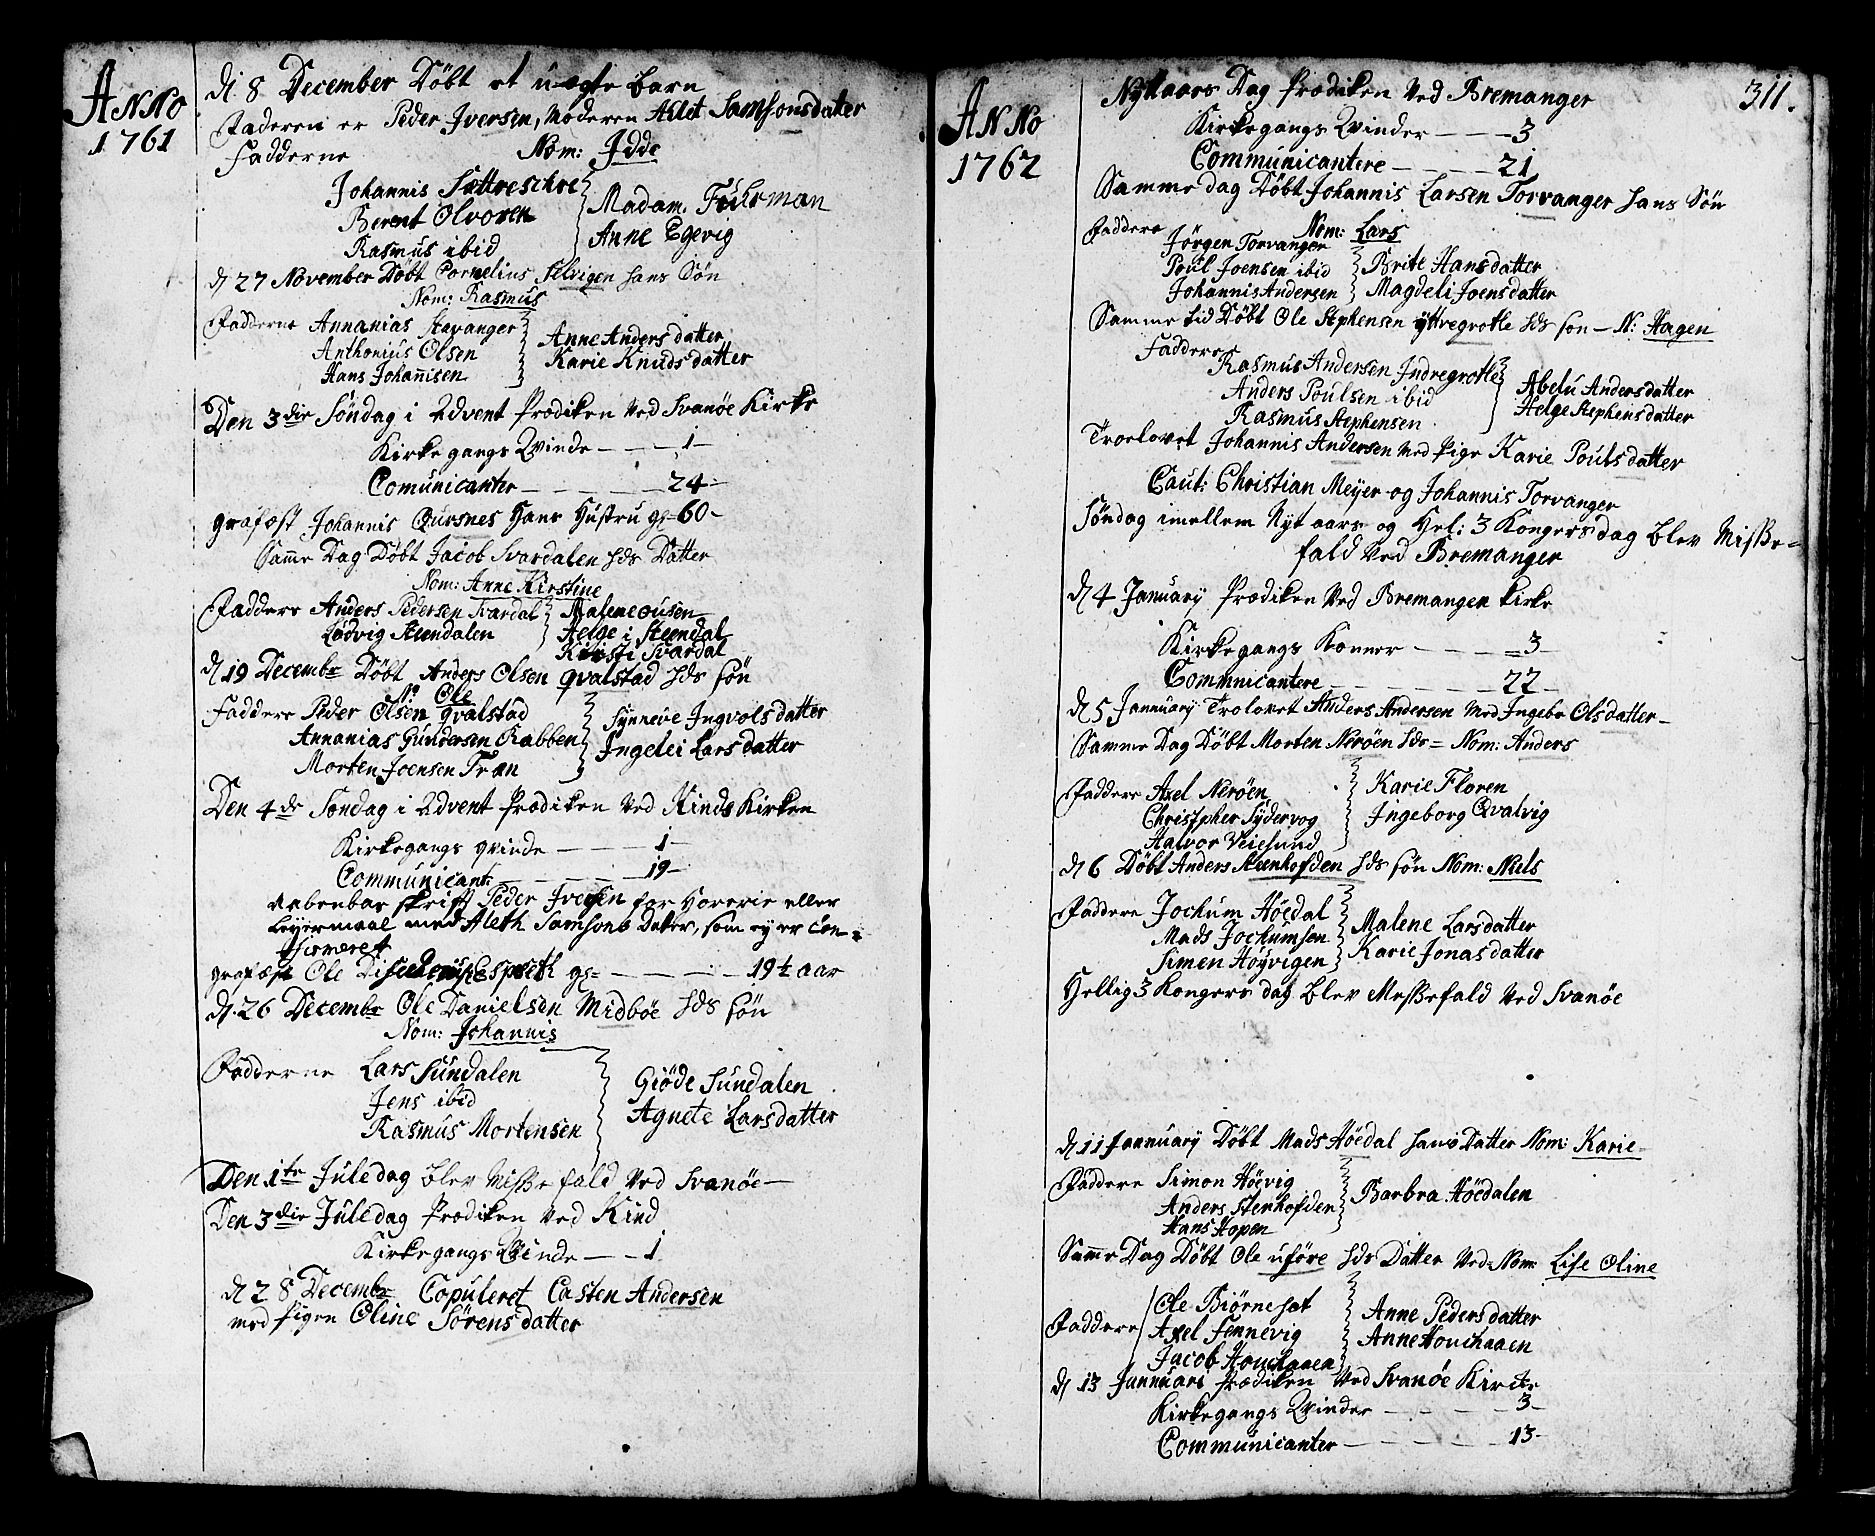 ANNO
1761
d. 8 December Döbt et uægte barn
Faderen er Peder Iversen, Moderen Aslet Samsonsdatter
Fadderne Nom: Idde
Johannis Sættreschre
Madam. Fuhrman
Berent Olvoren
Anne Egevig
Rasmus ibid
d 27 November Döbt Cornelius Selvigen hans Sön
Nom: Rasmus
Fadderne Annanias Stavanger
Anne Andersdatter
Anthonius Olsen
Karie Knudsdatter
Hans Johannisen
Den 3die Söndag i Advent Prædiken ved Svanöe Kirke
Kirkegangs Qvinde - - 1 -
Comunicanter - - - 24 -
grafæst Johannis Qursnes Hans Hustru gl= 60 -
Samme Dag Döbt Jacob Svardalen hds Datter
Nom: Anne Kirstine
Faddere Anders Pedersen Svardal
Malene ousen
Lödvig Steendalen
Helge i Steendal
Kirsti Svardal
d 19 Decembr Döbt Anders Olsen qvalstad hds sön
No Ole
Faddere Peder Olsen qvalstad
Synneve Ingvolsdatter
Annanias Gundersen Rabben
Ingelei Larsdatter
Morten Joensen Tran
Den 4de Söndag i Advent Prædiken ved Kinds Kirken
Kirkegangs qvinde - - 1 -
Communicant: - - - 19 -
aabenbar skrift Peder Iversen for Horerie eller
Leyermaal med Aleth Samsons Dater, som ey er Con=
firmeret
grafæst Ole gl= - - - 19½ aar
d. 26 Decembr Ole Danielsen Midböe hds sön
Nom: Johannis
Fadderne Lars Sundalen
Giöde Sundalen
Jens ibid
Agnete Larsdatter
Rasmus Mortensen
Den 1te Juledag blev Missefald ved Svanöe -
Den 3die Juledag Prædiken ved Kind
Kirkegangs Qvinde - - 1
d 28 Decembr Copuleret Casten Andersen
med Pigen Oline Sörensdatter
311.
ANNO
1762
Nyttaars Dag Prædiken ved Bremanger
Kirkegangs Qvinder - - - 3
Communicantere - - - 21
Samme dag Döbt Johannis Larsen Torvanger hans Sön
Faddere Nom: Lars
Jörgen Torvanger
Poul Joensen ibid
Brite Hansdatter
Johannis Andersen
Magdeli Joensdatter
Samme tid Döbt Ole Stephensen yttregrotle hds son - N: Hagen
Faddere
Rasmus Andersen Indregrotle
Abelu Andersdatter
Anders Poulsen ibid
Helge Stephensdatter
Rasmus Stephensen
Troelovet Johannis Andersen med Pige Karie Poulsdatter
Caut: Christian Meyer og Johannis Torvanger
Söndag imellem Nyt aars og Hel: 3 Kongersdag blev Misse=
fald ved Bremanger
d 4 January Prædiken ved Bremangen Kirke
Kirkegangs Konner - - - 3 -
Communicantere - - - 22 -
d 5 Jannuary Trolovet Anders Andersen med Ingebr Olsdatter -
Samme Dag Döbt Morten Neröen hds= Nom: Anders
Faddere Axel Neröen
Karie Floren
Christpher Sydervog
Ingeborg Qvalvig
Halvor Veiesund
d 6 Döbt Anders Steenhofden hds sön Nom: Niels
Faddere Jochum Höedal
Malene Larsdatter
Mads Jochumsen
Karie Jonasdatter
Simen Höyvigen
Hellig 3 Kongers dag blev Messefald ved Svanöe
d 11 Jannuary Döbt Mads Höedal hans Datter Nom: Karie -
Faddere Simon Höevig
Barbra Höedalen
Anders Stenhofden
Hans Hopen
Samme Dag Döbt Ole uföre hds Datter ved Nom: Lise Oline
Faddere Ole Biörneset
Anne Pedersdatter
Axel Fennevig
Anne Houchaaen
Jacob Houchaaen
d 13 Jannuari Prædiken ved Svanöe Kircke
Kirkegangs Qvinder - - - 3 -
Communicanter - - - 13 -